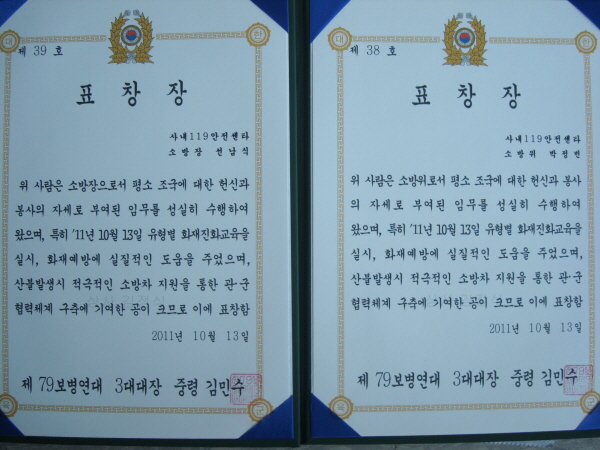 제 39 호
표 창 장
사내119안전센타
소 방 장 선 남 식
위 사람은 소방장으로서 평소 조국에 대한 헌신과
봉사의 자세로 부여된 임무를 성실히 수행하여
왔으며, 특히 '11년 10월 13일 유형별 화재진화교육을
실시, 화재예방에 실질적인 도움을 주었으며,
산불발생시 적극적인 소방차 지원을 통한 관·군
협력체계 구축에 기여한 공이 크므로 이에 표창함
2011년 10월 13일
제 79보병연대 3대대장 중령 김민수
제 38 호
표 창 장
사내119안전센타
소 방 위 박 정
위 사람은 소방위로서 평소 조국에 대한 헌신과 봉사
의 자세로 부여된 임무를 성실히 수행하여
왔으며, 특히 '11년 10월 13일 유형별 화재진화교육을
실시, 화재예방에 실질적인 도움을 주었으며,
산불발생시 적극적인 소방차 지원을 통한 관·군
협력체계 구축에 기여한 공이 크므로 이에 표창함
2011년 10월 13일
제 79보병연대 3대대장 중령 김민수